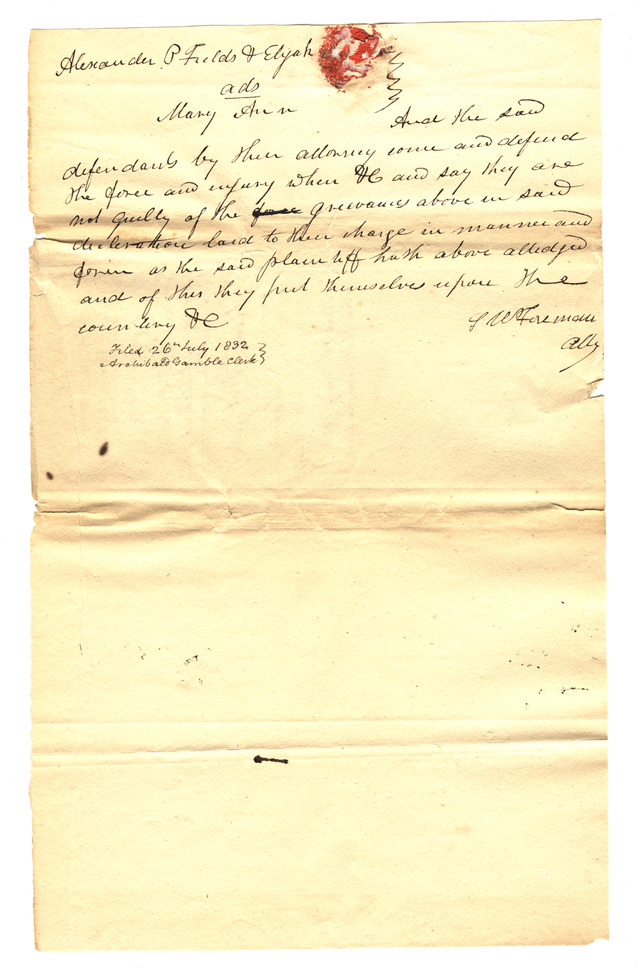 Alexander P Fields & Elijah
ads
Mary Ann
And the said
defendants by their attorney come and defend
the force and injury when &C and say they are
not guilty of the force grievances above in said
declaration laid to their charge in manner and
form as the said plaintiff hath above alledged
and of this they put themselves upon the
country &C
Foreman
Atty
Filed 26th July 1832
Archibald Gamble Clerk